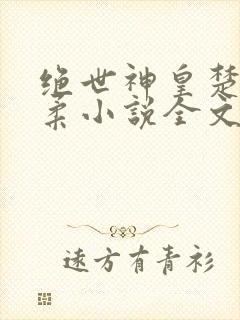 绝世神皇楚
柔小说全文
远方有青衫